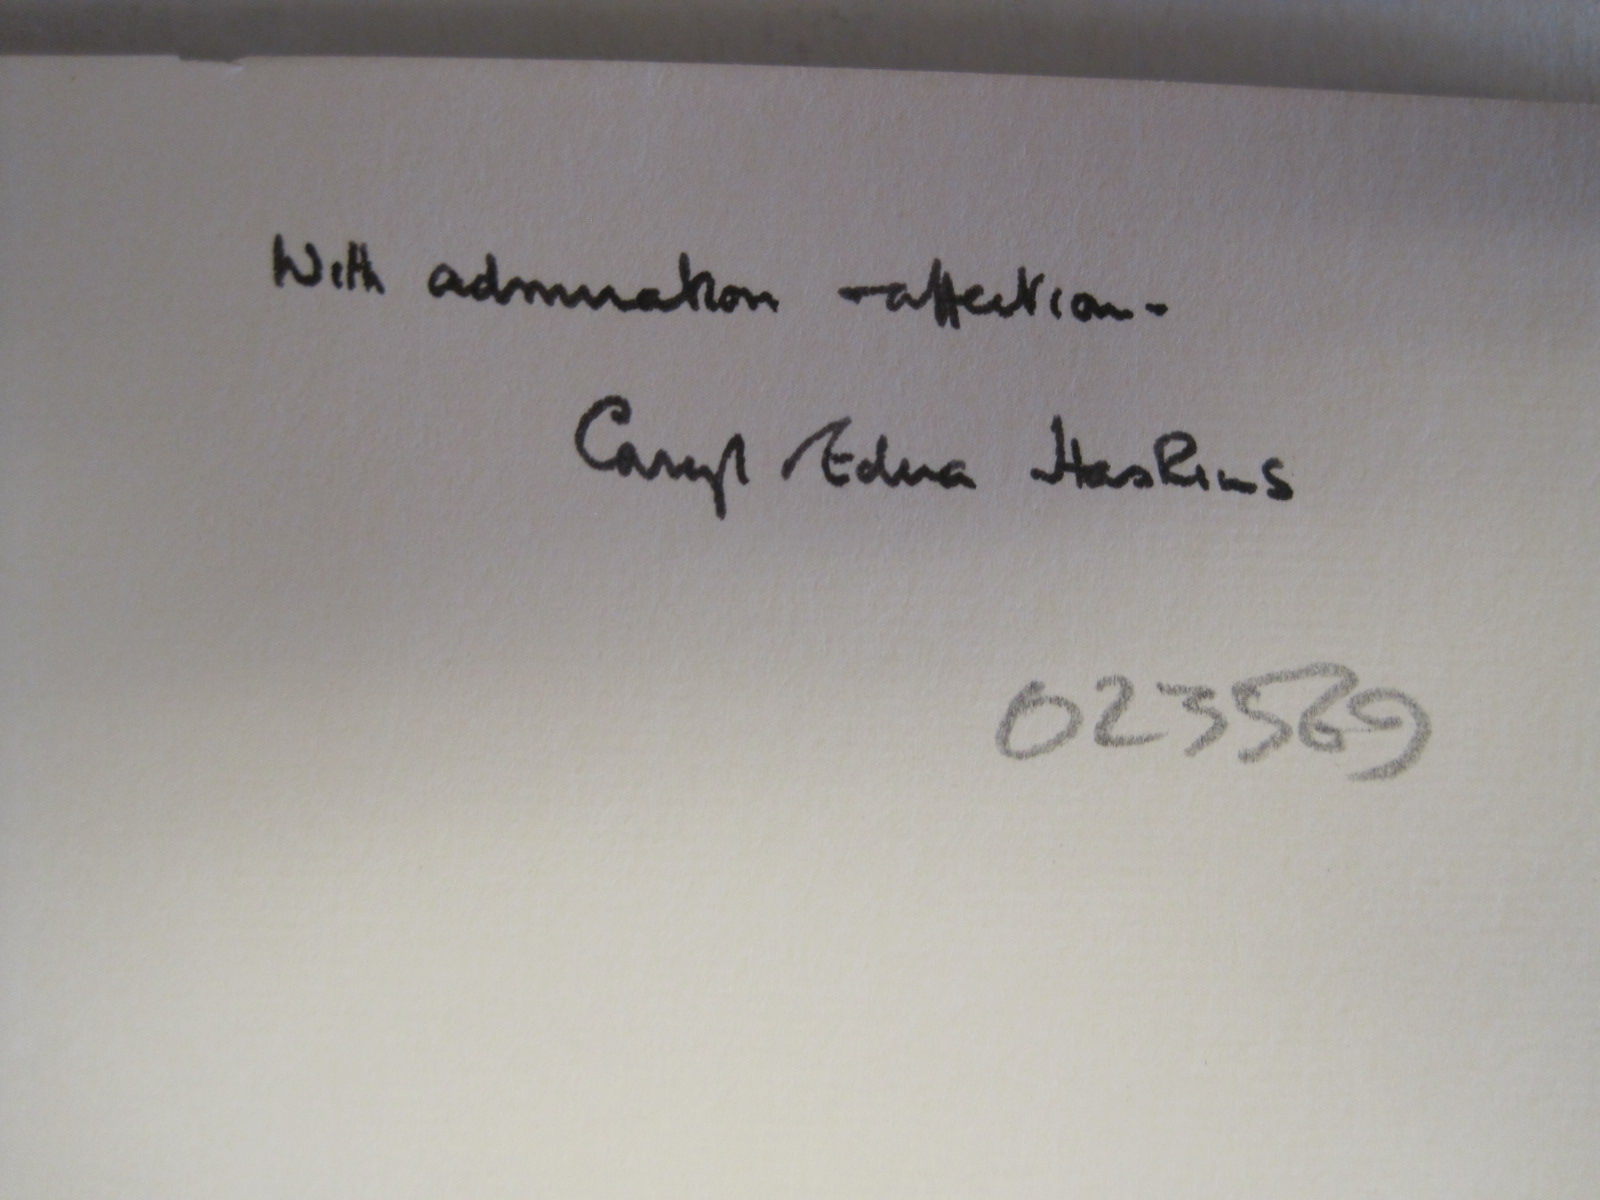 With admiration - affection -
Caryl Edna Haskins
023569